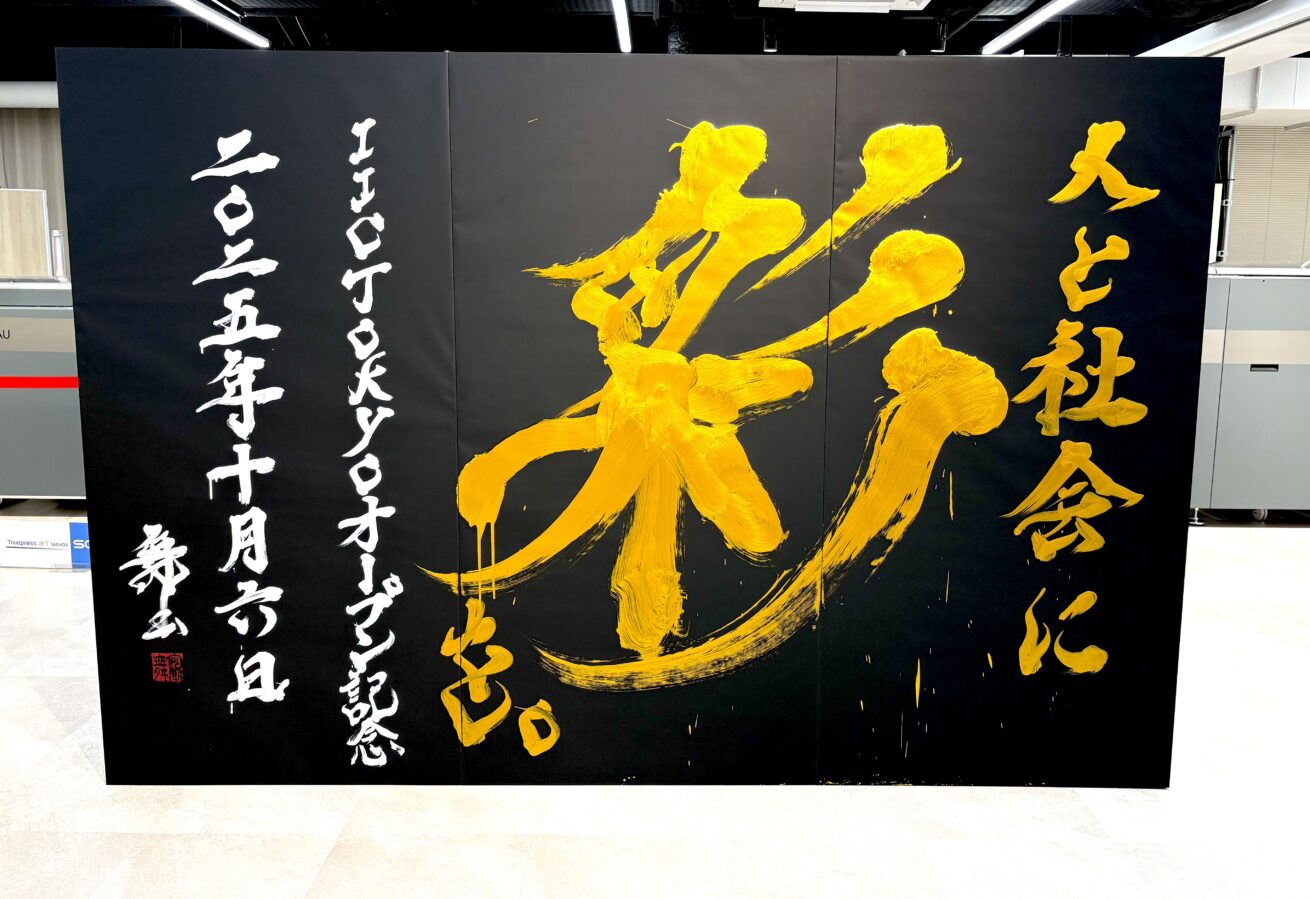 人と社会に
彩
を。
IIC TOKYOオープン記念
二〇二五年十月六日
Truepress JET